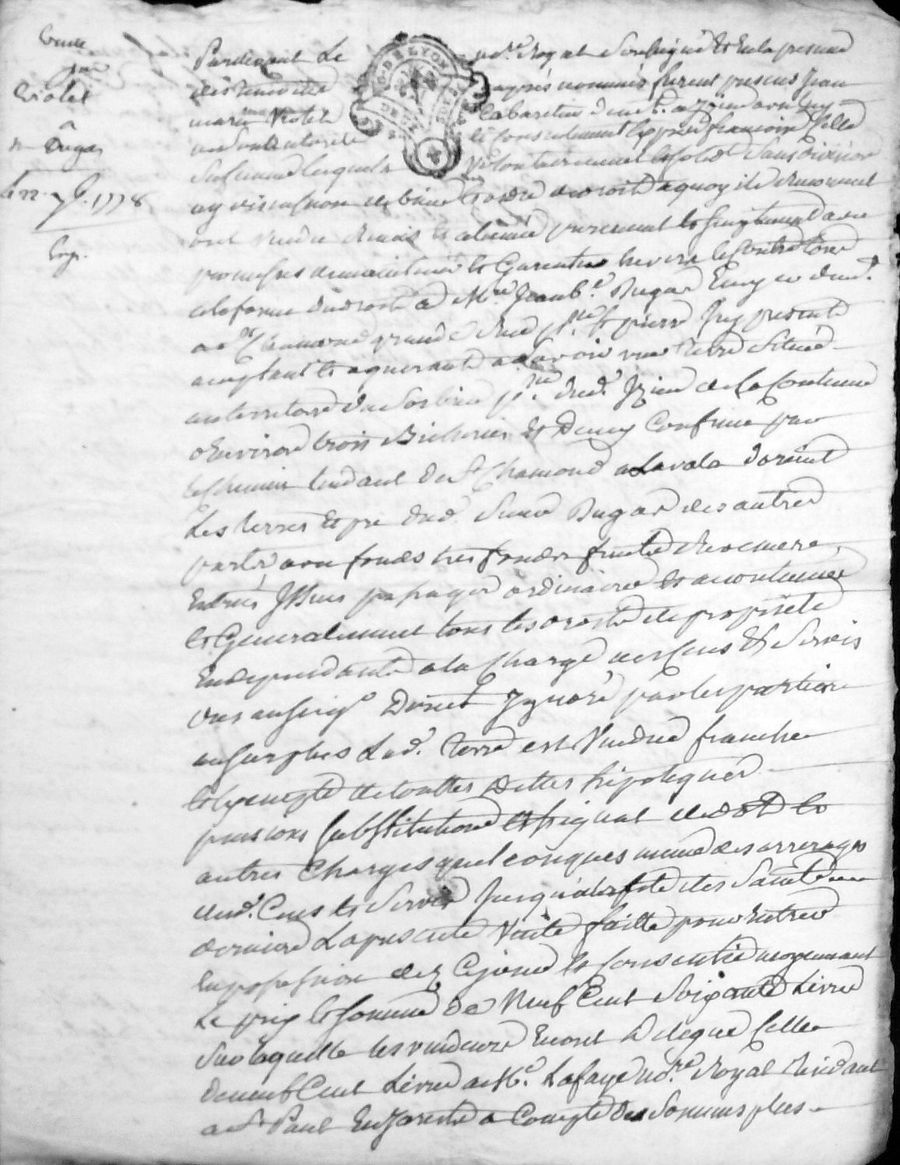 Vente
Violet
à Dugas
du 22 7bre 1778
Exp.
Pardevant Le notre Royal Soussigné Et En la presence
des temoins cy après nommés furent presens Jean
marie Violet Cabaretier demt. a Izieu avec luy
de son autorité et consentement Exprès françoise
sa femme lesquels Volontairement Et solid. Sans division
ny discussion de biens Et ordre de droit a quoy ils Renoncent
ont Vendu Remis Et aliéné purement Et simplement avec
promesses de maintenir Et Garentir Envers Et Contre tous
a la forme du droit a Mre Jean Dugas Ecuyer demt.
a St. Chamond grande Rue psse St. pierre Icy present
acceptant Et aquerant a Savoir une Terre Située
au territoire du Sorbier psse dud. Izieu de la Contenue
d'Environ trois Bicherées Et Demy Confinée par
le Chemin tendant de St. Chamond a Lavala d'orient
Les terres Et pré dud. Sieur Dugas des autres
parts avec fonds tres fonds fruits Recrues
Entrées Issues passages ordinaires Et accoutumés
Et Generalement tous les droits de propriété
En dependants a la Charge des Cens Et Servis
dus au seigr. Direct Ignoré par les parties
au surplus Lad. terre est Vendue franche
Et Exempte de touttes Dettes hipoteques
pensions Substitutions Et
autres Charges quelconques meme des arrerages
dud. Cens Et Servis Jusqu'à la fête de St.
derniere La presente Vente faitte pour Entrer
En possession dez Ce jour Et Consentie moyennant
Le prix Et Somme de Neuf Cent Soixante Livres
Sur laquelle les vendeurs En ont Delegué Celle
de neuf Cent Livres a Me. Lafaye notre Royal Residant
a St. Paul En Jarest a Compte des Sommes plus